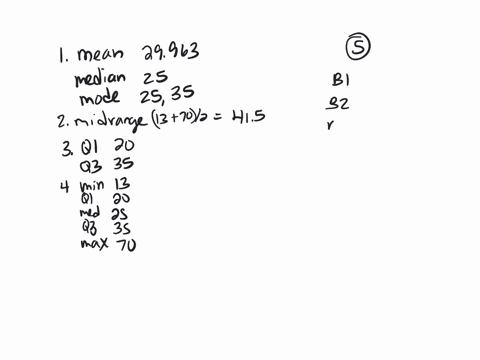 1. mean 29.963
median 25
mode 25, 35
2. midrange (13+70)/2 = 41.5
3. Q1 20
Q3 35
4 min 13
Q1 20
med 25
Q3 35
max 70
S
B1
B2
r